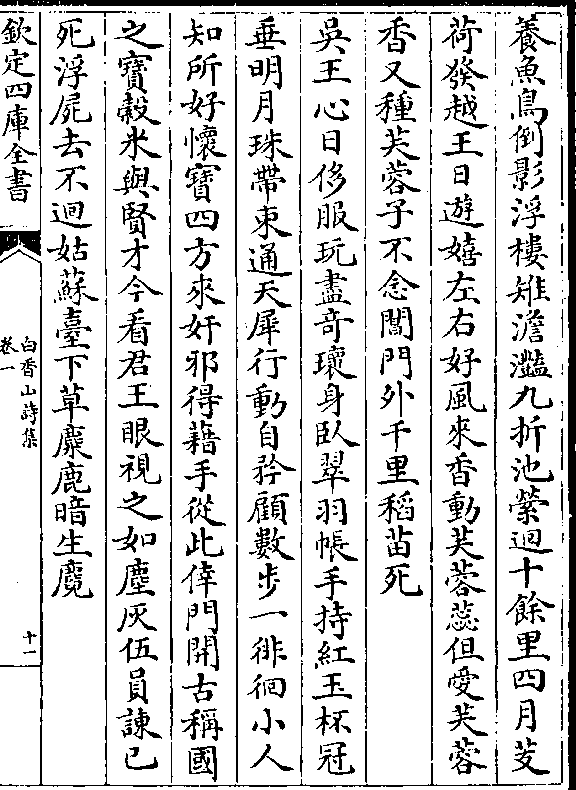 養魚鳥倒影浮樓雉澹灩九折池縈迴十餘里四月芰
荷發越王日遊嬉左右好風來香動芙蓉蕊但愛芙蓉
香又種芙蓉子不念閶門外千里稻苗死
吳王心日侈服玩盡奇瓌身臥翠羽帳手持紅玉杯冠
垂明月珠帶束通天犀行動自矜顧數步一徘徊小人
知所好懷寶四方來奸邪得藉手從此倖門開古稱國
之寶穀米與賢才今看君王眼視之如塵灰伍員諫已
死浮屍去不迴姑蘇臺下草麋鹿暗生麑
欽定四庫全書
白香山詩集
卷一
十一